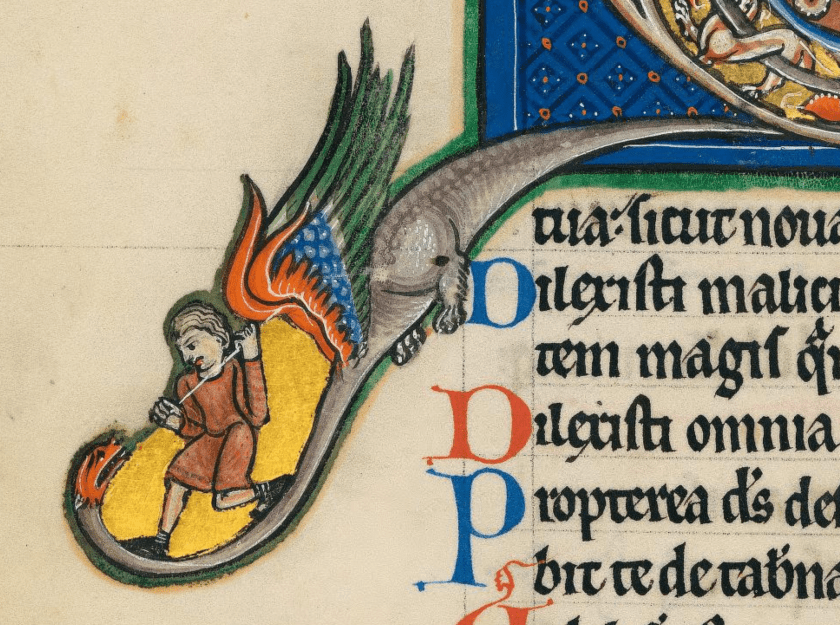 tua: sicut noua
Dilexisti malici
tem magis q̄
Dilexisti omnia
Propterea d̄s de
bit te de tab̄na